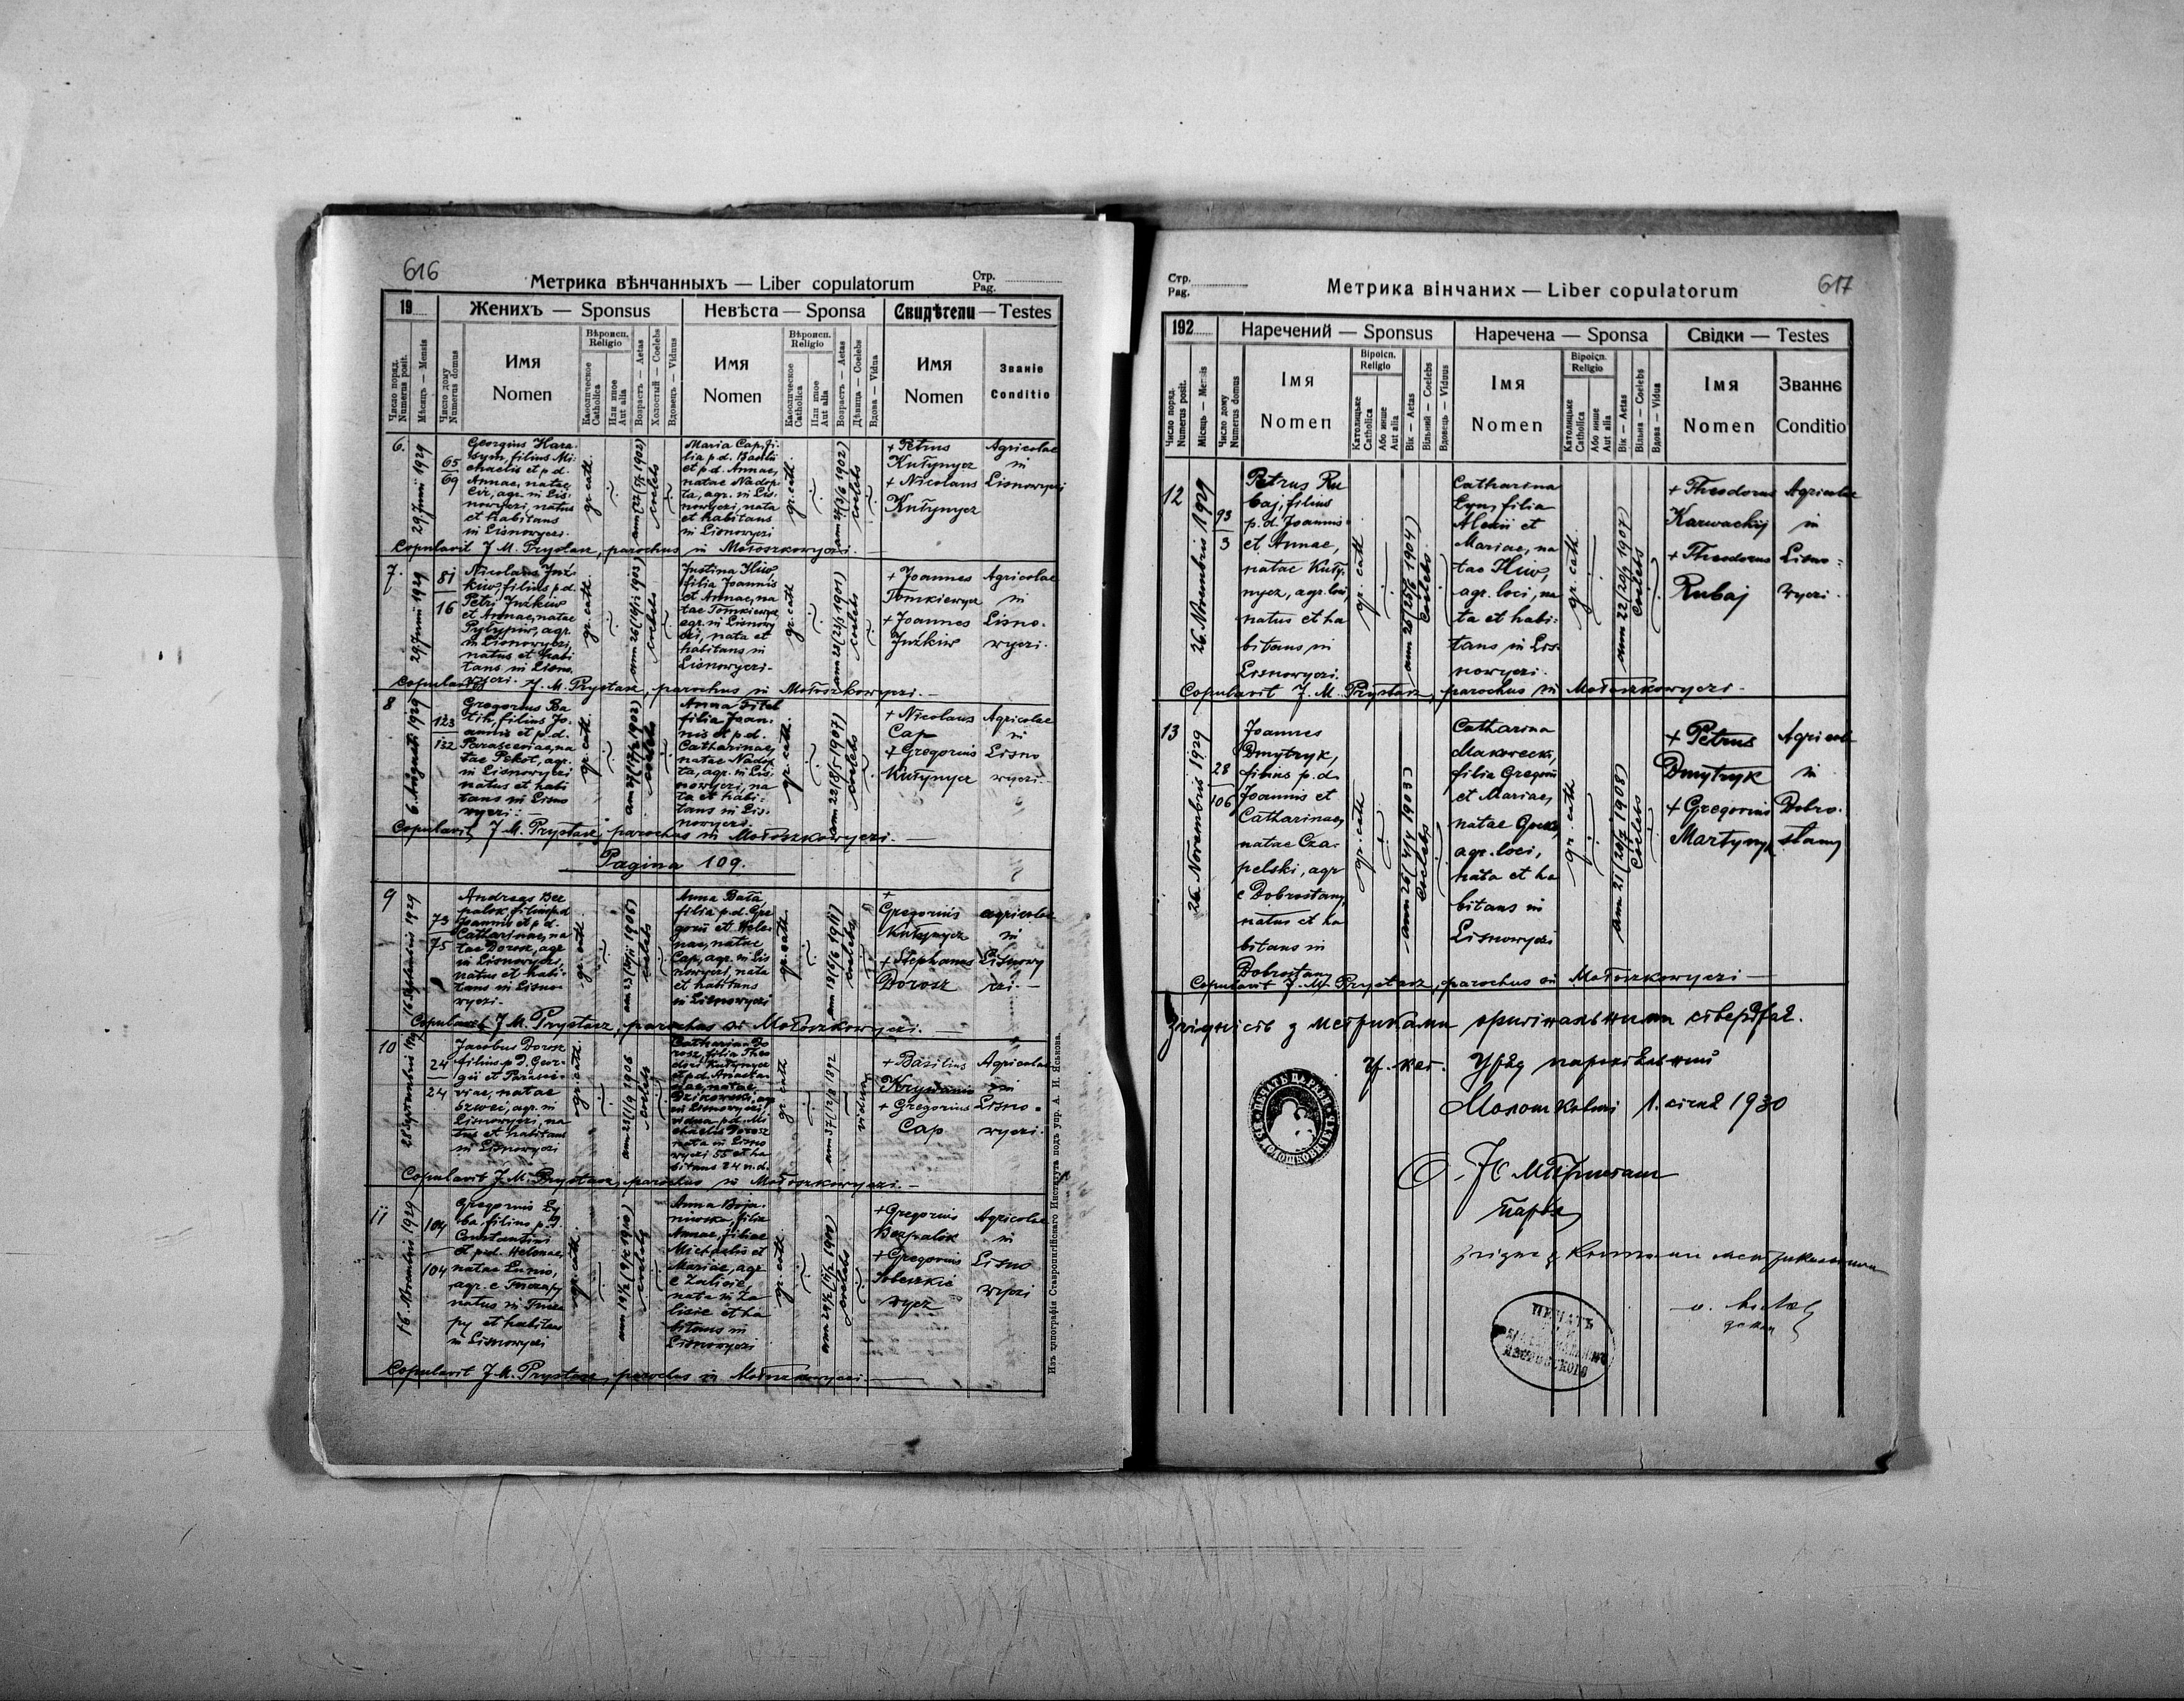 616
Метрика вѣнчанныхъ — Liber copulatorum
Стр.
Pag.
19
Женихъ — Sponsus
Невѣста — Sponsa
Свидѣтели — Testes
Число поряд.
Numerus posit.
Мѣсяць — Mensis
Число дому
Numerus domus
Имя
Nomen
Вѣроисп.
Religio
Каѳолическое
Catholica
Или иное
Aut alia
Возрастъ — Aetas
Холостый — Coelebs
Вдовецъ — Viduus
Имя
Nomen
Вѣроисп.
Religio
Каѳолическое
Catholica
Или иное
Aut alia
Возрастъ — Aetas
Дѣвица — Coelebs
Вдова — Vidua
Имя
Nomen
Званіе
Conditio
6.
29 Junii 1929
65
69
Georgius Hara-
sym, filius Mi-
chaelis et p.d.
Annae, natae
Cir, agr. in Lis-
nowyczi, natus
et habitans
in Lisnowyczi.
gr. cath.
coelebs
Maria Cap, fi-
lia p.d. Basilii
et p.d. Annae,
natae Nadop
ta, agr. in Lis-
nowyczi, nata
et habitans
in Lisnowyczi
gr. cath.
coelebs
+ Petrus
Kutynycz
+ Nicolaus
Kutynycz
Agricolae
in
Lisnowyczi
Copulavit J. M. Prystasz, parochus in Mołoszkowyczi.
7.
29 Junii 1929
81
16
Nicolaus Juź
kiw, filius p.d.
Petri Juźkiw
et Annae, natae
Pyłypiw, agr.
in Lisnowyczi,
natus et habi
tans in Lisno
wyczi.
gr. cath.
coelebs
Justina Hliw
filia Joannis
et Annae, na
tae Tomkiewycz
agr. in Lisnowy
czi, nata et
habitans in
Lisnowyczi
gr. cath.
coelebs
+ Joannes
Tomkiewycz
+ Joannes
Juźkiw
Agricolae
in
Lisno-
wyczi.
Copulavit J. M. Prystasz, parochus in Mołoszkowyczi.
8
6 Augusti 1929
123
132
Gregorius Ba
tih, filius Jo-
annis et p.d.
Parasceviae, na
tae Pekot, agr.
in Lisnowyczi
natus et habi
tans in Lisno
wyczi.
gr. cath.
coelebs
Anna Fitel
filia Joan-
nis et p.d.
Catharinae,
natae Nadop
ta, agr. in Lis-
nowyczi, na
ta et habi-
tans in Lis-
nowyczi.
gr. cath.
coelebs
+ Nicolaus
Cap
+ Gregorius
Kutynycz
Agricolae
in
Lisno
wyczi
Copulavit J. M. Prystasz, parochus in Mołoszkowyczi.
Pagina 109.
9
16 Septembris 1929
73
75
Andreas Bez
palok, filius p.d.
Joannis et p.d.
Catharinae, na
tae Dorosz, agr.
in Lisnowyczi,
natus et habi-
tans in Lisno-
wyczi.
gr. cath.
coelebs
Anna Bała,
filia p.d. Gre
gorii et Hele-
nae, natae
Cap, agr. in Lis
nowyczi, nata
et habitans
in Lisnowyczi
gr. cath.
coelebs
+
Gregorius
Kutynycz
+ Stephanus
Dorosz
agricolae
in
Lisnowy
czi.
Copulavit J. M. Prystasz, parochus in Mołoszkowyczi.
10
24
24
Jacobus Dorosz
filius p.d. Geor-
gii et Parasce-
viae, natae
Szwec, agr. in
Lisnowyczi, na
tus et habitans
in Lisnowyczi
gr. cath.
coelebs
Catharina Do
rosz, filia Theo
dori Kutynycz
gr. cath.
vidua
+ Basilius
+ Gregorius
Cap
Agricolae
in
Lisno-
wyczi.
Copulavit J. M. Prystasz, parochus in Mołoszkowyczi.
11
16 Novembris 1929
104
104
Gregorius Ły
ba, filius p.d.
Constantini
et p.d. Helenae,
natus in
py et habitans
in Lisnowyczi
gr. cath.
coelebs
Annae, filiae
Michaelis et
Mariae, agr.
e Zalisie,
nata in Za
lisie et ha
bitans in
Lisnowyczi
gr. cath.
coelebs
+ Gregorius
Bezpalok
+ Gregorius
Agricolae
in
Lisno
wyczi
Copulavit J. M. Prystasz, parochus in Mołoszkowyczi.
Изъ типографіи Ставропигійскаго Института подъ упр. А. И. Яськова.
617
Стр.
Pag.
Метрика вінчаних — Liber copulatorum
192
Наречений — Sponsus
Наречена — Sponsa
Свідки — Testes
Число поряд.
Numerus posit.
Місяць — Mensis
Число дому
Numerus domus
Імя
Nomen
Віроісп.
Religio
Католицьке
Catholica
Або инше
Aut alia
Вік — Aetas
Вільний — Coelebs
Вдовець — Viduus
Імя
Nomen
Віроісп.
Religio
Католицьке
Catholica
Або инше
Aut alia
Вік — Aetas
Вільна — Coelebs
Вдова — Vidua
Імя
Nomen
Званнє
Conditio
12
26 Novembris 1929
93
3
Petrus Ru
baj, filius
p.d. Joannis
et Annae,
natae Kuty-
nycz, agr. loci,
natus et ha
bitans in
Lisnowyczi.
gr. cath
coelebs
Catharina
Łyn, filia
Alexii et
Mariae, na
tae Hliw,
agr. loci, na
ta et habi-
tans in Lis-
nowyczi.
gr. cath.
coelebs
+ Theodorus
Karwackij
+ Theodorus
Rubaj
Agricolae
in
Lisno-
wyczi.
Copulavit J. M. Prystasz, parochus in Mołoszkowyczi.
13
26 Novembris 1929
28
106
Joannes
Dmytryk,
filius p.d.
Joannis et
Catharinae,
natae Cza-
pelski, agr
e Dobrostany
natus et ha
bitans in
Dobrostany
gr. cath
coelebs
Catharina
filia Gregorii
et Mariae,
natae
agr. loci,
nata et ha
bitans in
Lisnowyczi
gr. cath
coelebs
+ Petrus
Dmytryk
+ Gregorius
Martynyk
Agricolae
in
Dobro-
stany
Copulavit J. M. Prystasz, parochus in Mołoszkowyczi
Згідність з метриками оригінальними стверджає.
Гр. кат. Уряд парохіяльний
Молошковичі 1. січня 1930
ПЕЧАТЬ